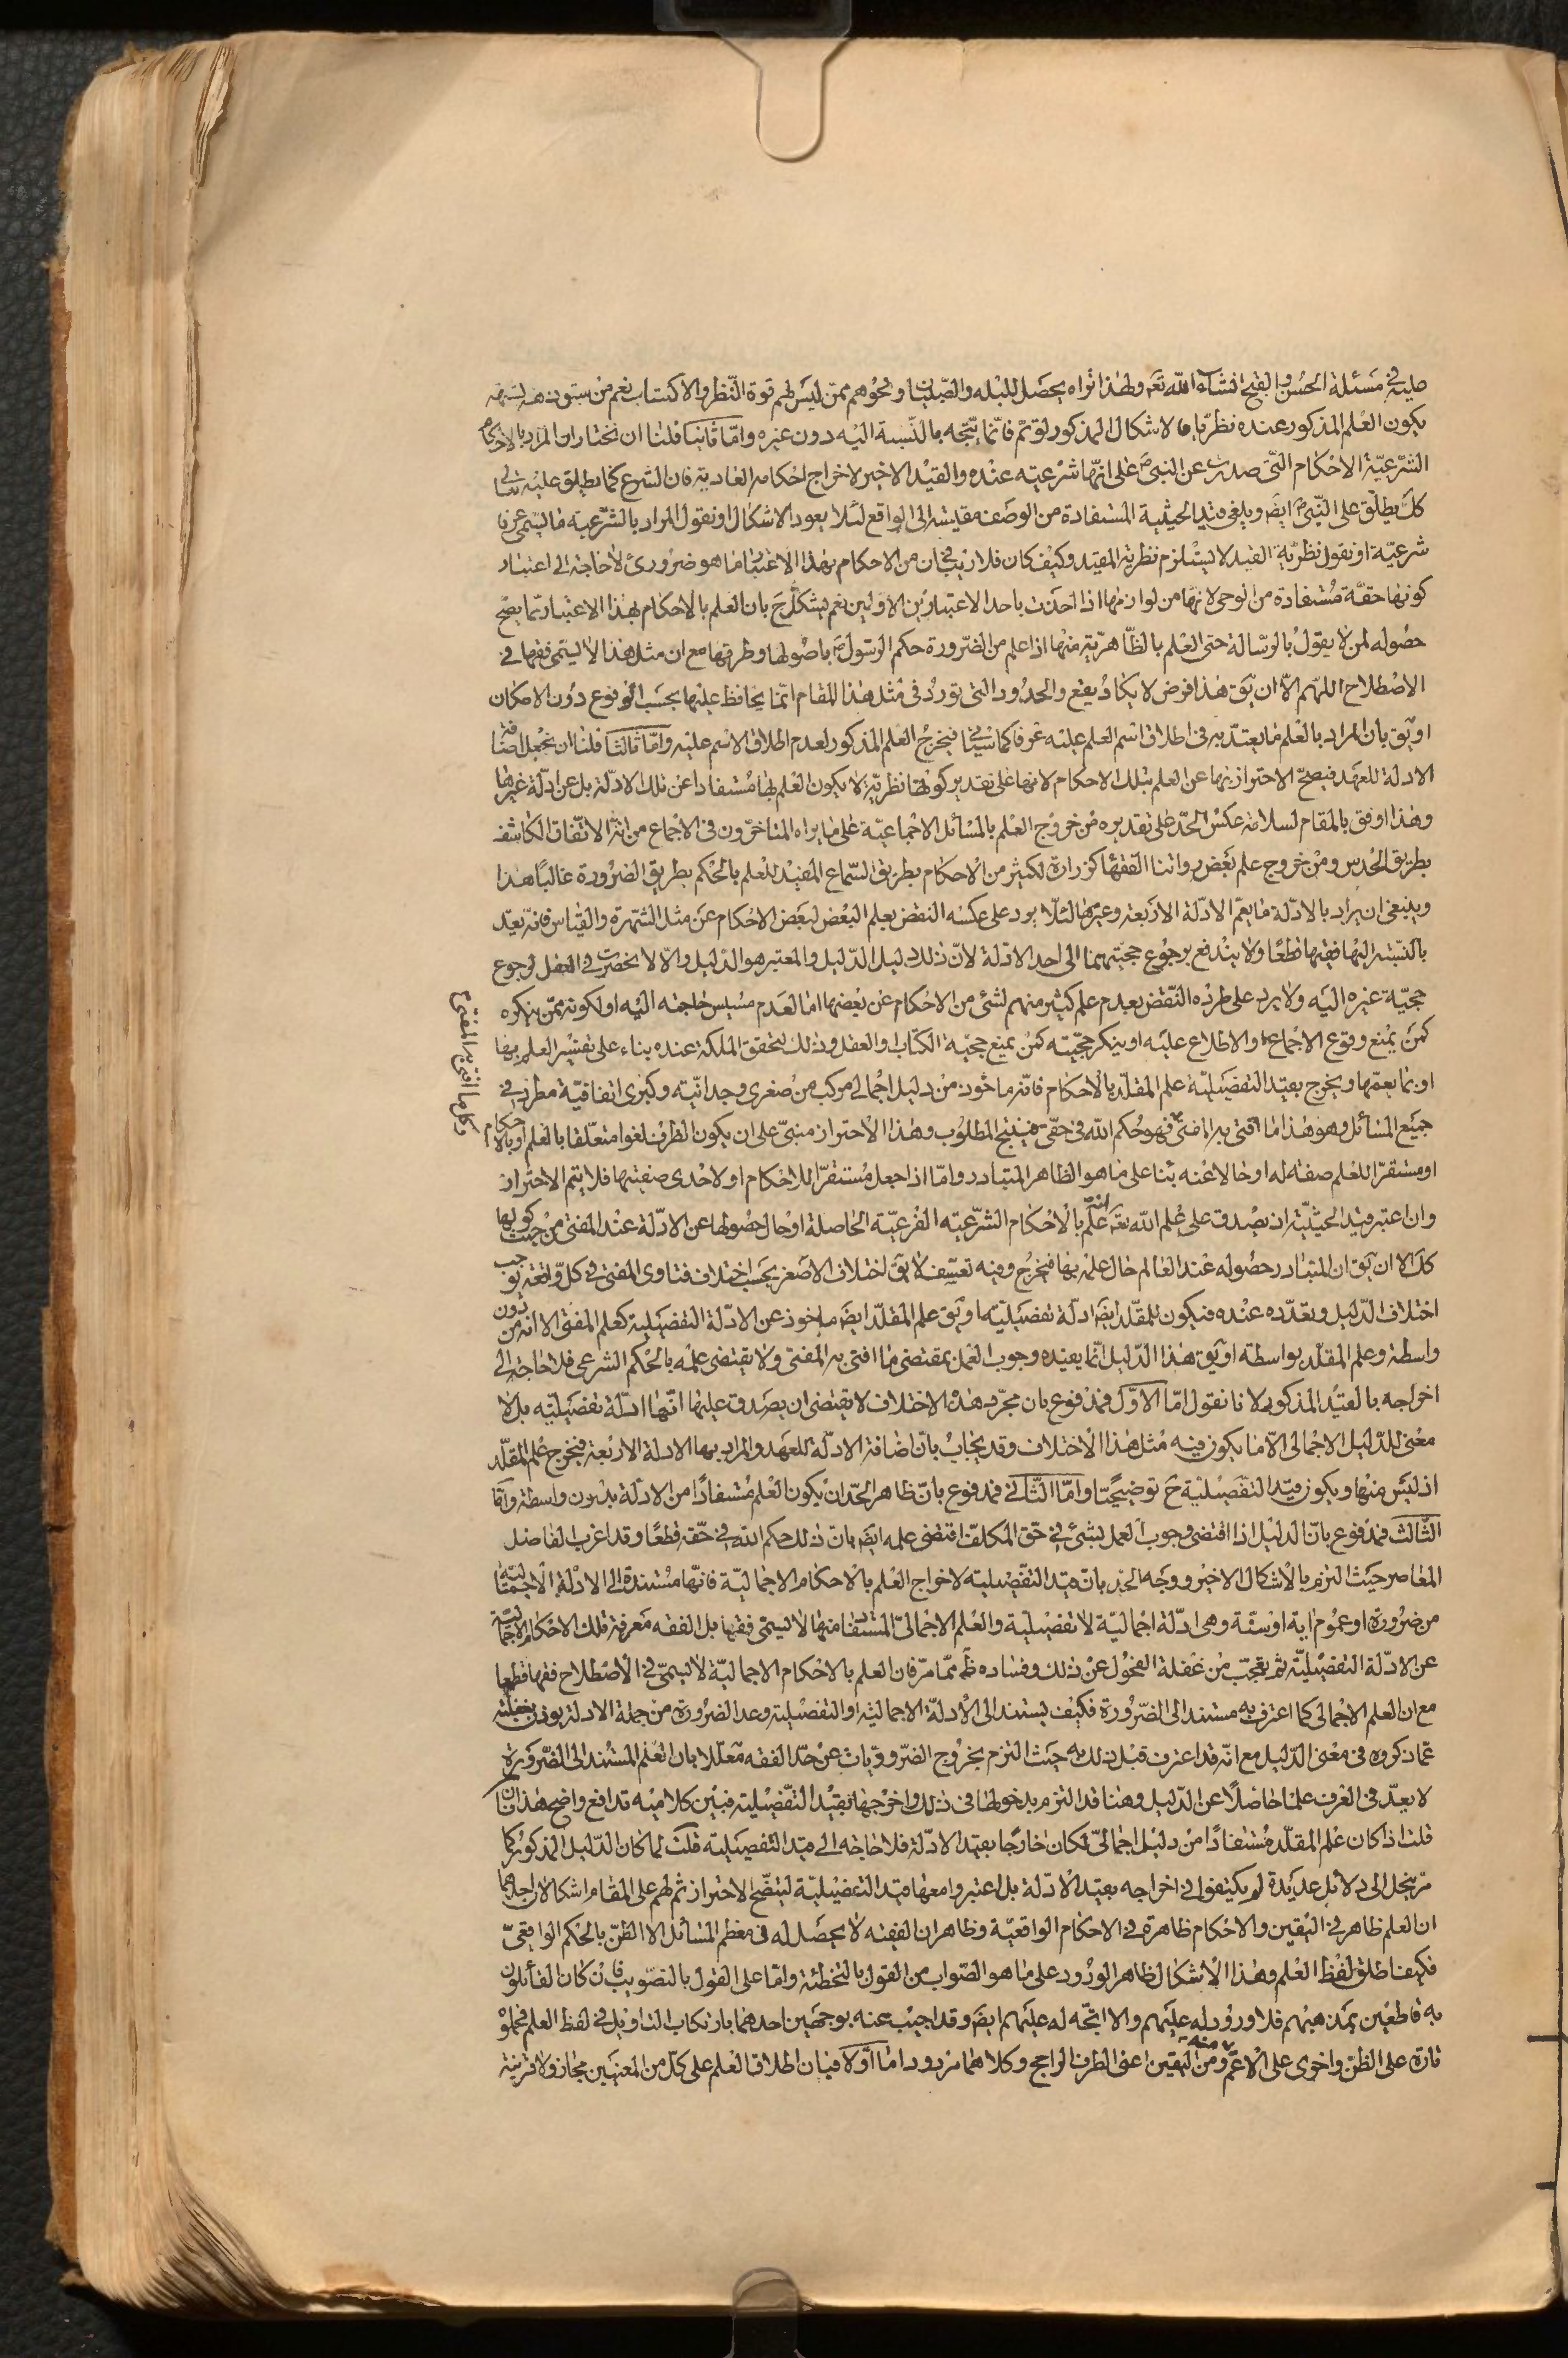 عليه في مسئلة الحسن والقبح انشاء الله تعم ولهذا نراه يحصل للبله والصبيان ونحوهم ممن ليس لهم قوة النظر والاكتساب نعم من سبقت شبهة
يكون العلم المذكور عنده نظريا والاشكال المذكور لو تم فانما يتجه بالنسبة اليه دون غيره واما ثانيا فلنا ان نختار ان المراد بالاحكام
الشرعية الاحكام التى صدرت عن النبى ص على انها شرعية عنده والقيد الاخير لاخراج احكامه العادية فان الشرع كما يطلق عليه تعالى
كك يطلق على النبى ص ايضا ويلغى قيد الحيثية المستفادة من الوصف مقايسته الى الواقع لئلا يعود الاشكال او نقول المراد بالشرعية ما يسمى عرفا
شرعية او نقول نظرية القيد لا يستلزم نظرية المقيد وكيف كان فلا ريب في ان من الاحكام بهذا الاعتبار ما هو ضرورى لا حاجة الى اعتبار
كونها حقة مستفادة من الوحى لانها من لوازمها اذا اخذت باحد الاعتبارين الاولين نعم يشكل ح بان العلم بالاحكام بهذا الاعتبار مما يصح
حصوله لمن لا يقول بالرسالة حتى العلم بالظاهرية منها اذا علم من الضرورة حكم الرسول ص باصولها وطرقها مع ان مثل هذا لا يسمى فقها في
الاصطلاح اللهم الا ان يق هذا فرض لا يكاد يقع والحدود التى تورد في مثل هذا المقام انما يحافظ عليها بحسب الوقوع دون الامكان
او يق بان المراد بالعلم ما يعتد به في اطلاق اسم العلم عليه عرفا كما سياتى فيخرج العلم المذكور لعدم اطلاق الاسم عليه واما ثالثا فلنا ان نجعل اضافة
الادلة للعهد فيصح الاحتراز بها عن العلم بتلك الاحكام لانها على تقدير كونها نظرية لا يكون العلم بها مستفادا عن تلك الادلة بل عن ادلة غيرها
وهذا اوفق بالمقام لسلامة عكس الحد على تقديره من خروج العلم بالمسائل الاجماعية على ما يراه المتاخرون في الاجماع من انه الاتفاق الكاشف
بطريق الحدس ومن خروج علم بعض رواتنا الفقهاء كزرارة لكثير من الاحكام بطريق السماع المفيد للعلم بالحكم بطريق الضرورة غالبا هذا
وينبغى ان يراد بالادلة ما يعم الادلة الاربعة وغيرها لئلا يرد على عكسه النقض بعلم البعض لبعض الاحكام عن مثل الشهرة والقياس فانه يعد
بالنسبة اليها فقيها قطعا ولا يندفع برجوع حجيتهما الى احد الادلة لان ذلك دليل الدليل والمعتبر هو الدليل والا لانحصرت في العقل لرجوع
حجية غيره اليه ولا يرد على طرده النقض بعدم علم كثير منهم لشئ من الاحكام عن بعضها اما لعدم مسيس حاجته اليه او لكونه ممن ينكره
كمن يمنع وقوع الاجماع او الاطلاع عليه او ينكر حجيته كمن يمنع حجية الكتاب والعقل وذلك لتحقق الملكة عنده بناء على تفسير العلم بها
او بما يعمها ويخرج بقيد التفصيلية علم المقلد بالاحكام فانه ماخوذ من دليل اجمالى مركب من صغرى وجدانية وكبرى اتفاقية مطردة في
جميع المسائل وهو هذا ما افتى به المفتى فهو حكم الله في حقى فينتج المطلوب وهذا الاحتراز مبنى على ان يكون الظرف لغوا متعلقا بالعلم او بالاحكام
وكل ما افتى به المفتى ٢
او مستقرا للعلم صفة له او حالا عنه بناء على ما هو الظاهر المتبادر واما اذا جعل مستقرا للاحكام او لاحدى صفتيها فلا يتم الاحتراز
وان اعتبر قيد الحيثية اذ يصدق على علم الله تعه انه علم بالاحكام الشرعية الفرعية الحاصلة او حال حصولها عن الادلة عند المفتى من حيث كونها
كك الا ان يق ان المتبادر حصوله عند العالم حال علمه بها فيخرج وفيه تعسف لا يق اختلاف الاصغر بحسب اختلاف فتاوى المفتى في كل واقعة يوجب
اختلاف الدليل وتعدده عنده فيكون للمقلد ايضا ادلة تفصيلية او يق علم المقلد ايضا ماخوذ عن الادلة التفصيلية كعلم المفتى الا انه من دون
واسطة وعلم المقلد بواسطة او يق هذا الدليل انما يفيده وجوب العمل بمقتضى ما افتى به المفتى ولا يقتضى علمه بالحكم الشرعى فلا حاجة الى
اخراجه بالقيد المذكور لانا نقول اما الاول فمدفوع بان مجرد هذه الاختلاف لا يقتضى ان يصدق عليها انها ادلة تفصيلية بل لا
معنى للدليل الاجمالى الا ما يكون فيه مثل هذا الاختلاف وقد يجاب بان اضافة الادلة للعهد والمراد بها الادلة الاربعة فيخرج علم المقلد
اذ ليس منها ويكون قيد التفصيلية ح توضيحيا واما الثانى فمدفوع بان ظاهر الحد ان يكون العلم مستفادا من الادلة بدون واسطة واما
الثالث فمدفوع بان الدليل اذا اقتضى وجوب العمل بشئ في حق المكلف اقتضى علمه ايضا بان ذلك حكم الله في حقه قطعا وقد اغرب الفاضل
المعاصر حيث التزم بالاشكال الاخير ووجه الحد بان قيد التفصيلية لاخراج العلم بالاحكام الاجمالية فانها مستندة الى الادلة الاجمالية
من ضرورة او عموم اية او سنة وهى ادلة اجمالية لا تفصيلية والعلم الاجمالى المستفاد منها لا يسمى فقها بل الفقه معرفة تلك الاحكام الاجمالية
عن الادلة التفصيلية ثم تعجب من غفلة الفحول عن ذلك وفساده ظ مما مر فان العلم بالاحكام الاجمالية لا يسمى في الاصطلاح فقها قطعا
مع ان العلم الاجمالى كما اعترف به مستند الى الضرورة فكيف يستند الى الادلة الاجمالية او التفصيلية وعد الضرورة من جملة الادلة يؤذن بغفلته
عما ذكروه في معنى الدليل مع انه قد اعترف قبل ذلك به حيث التزم بخروج الضروريات عن حد الفقه معللا بان العلم المستند الى الضرورة
لا يعد في العرف علما حاصلا عن الدليل وهنا قد التزم بدخولها في ذلك واخرجها بقيد التفصيلية فبين كلاميه تدافع واضح هذا فان
قلت اذا كان علم المقلد مستفادا من دليل اجمالى لكان خارجا بقيد الادلة فلا حاجة الى قيد التفصيلية قلت لما كان الدليل المذكور كما
مر ينحل الى دلائل عديدة لم يكتفوا في اخراجه بقيد الادلة بل اعتبروا معها قيد التفصيلية ليتضح الاحتراز ثم لهم على المقام اشكالان احدهما
ان العلم ظاهر في اليقين والاحكام ظاهرة في الاحكام الواقعية وظاهر ان الفقيه لا يحصل له في معظم المسائل الا الظن بالحكم الواقعى
فكيف اطلق لفظ العلم وهذا الاشكال ظاهر الورود على ما هو الصواب من القول بالتخطئة واما على القول بالتصويب فان كان القائلون
به قاطعين بمذهبهم فلا ورود له عليهم والا اتجه له عليهم ايضا وقد اجيب عنه بوجهين احدهما بارتكاب التاويل في لفظ العلم فحملوه
تارة على الظن واخرى على الاعم منه ومن اليقين اعنى الطرف الراجح وكلاهما مردود اما اولا فبان اطلاق العلم على كل من المعنيين مجاز ولا قرينة